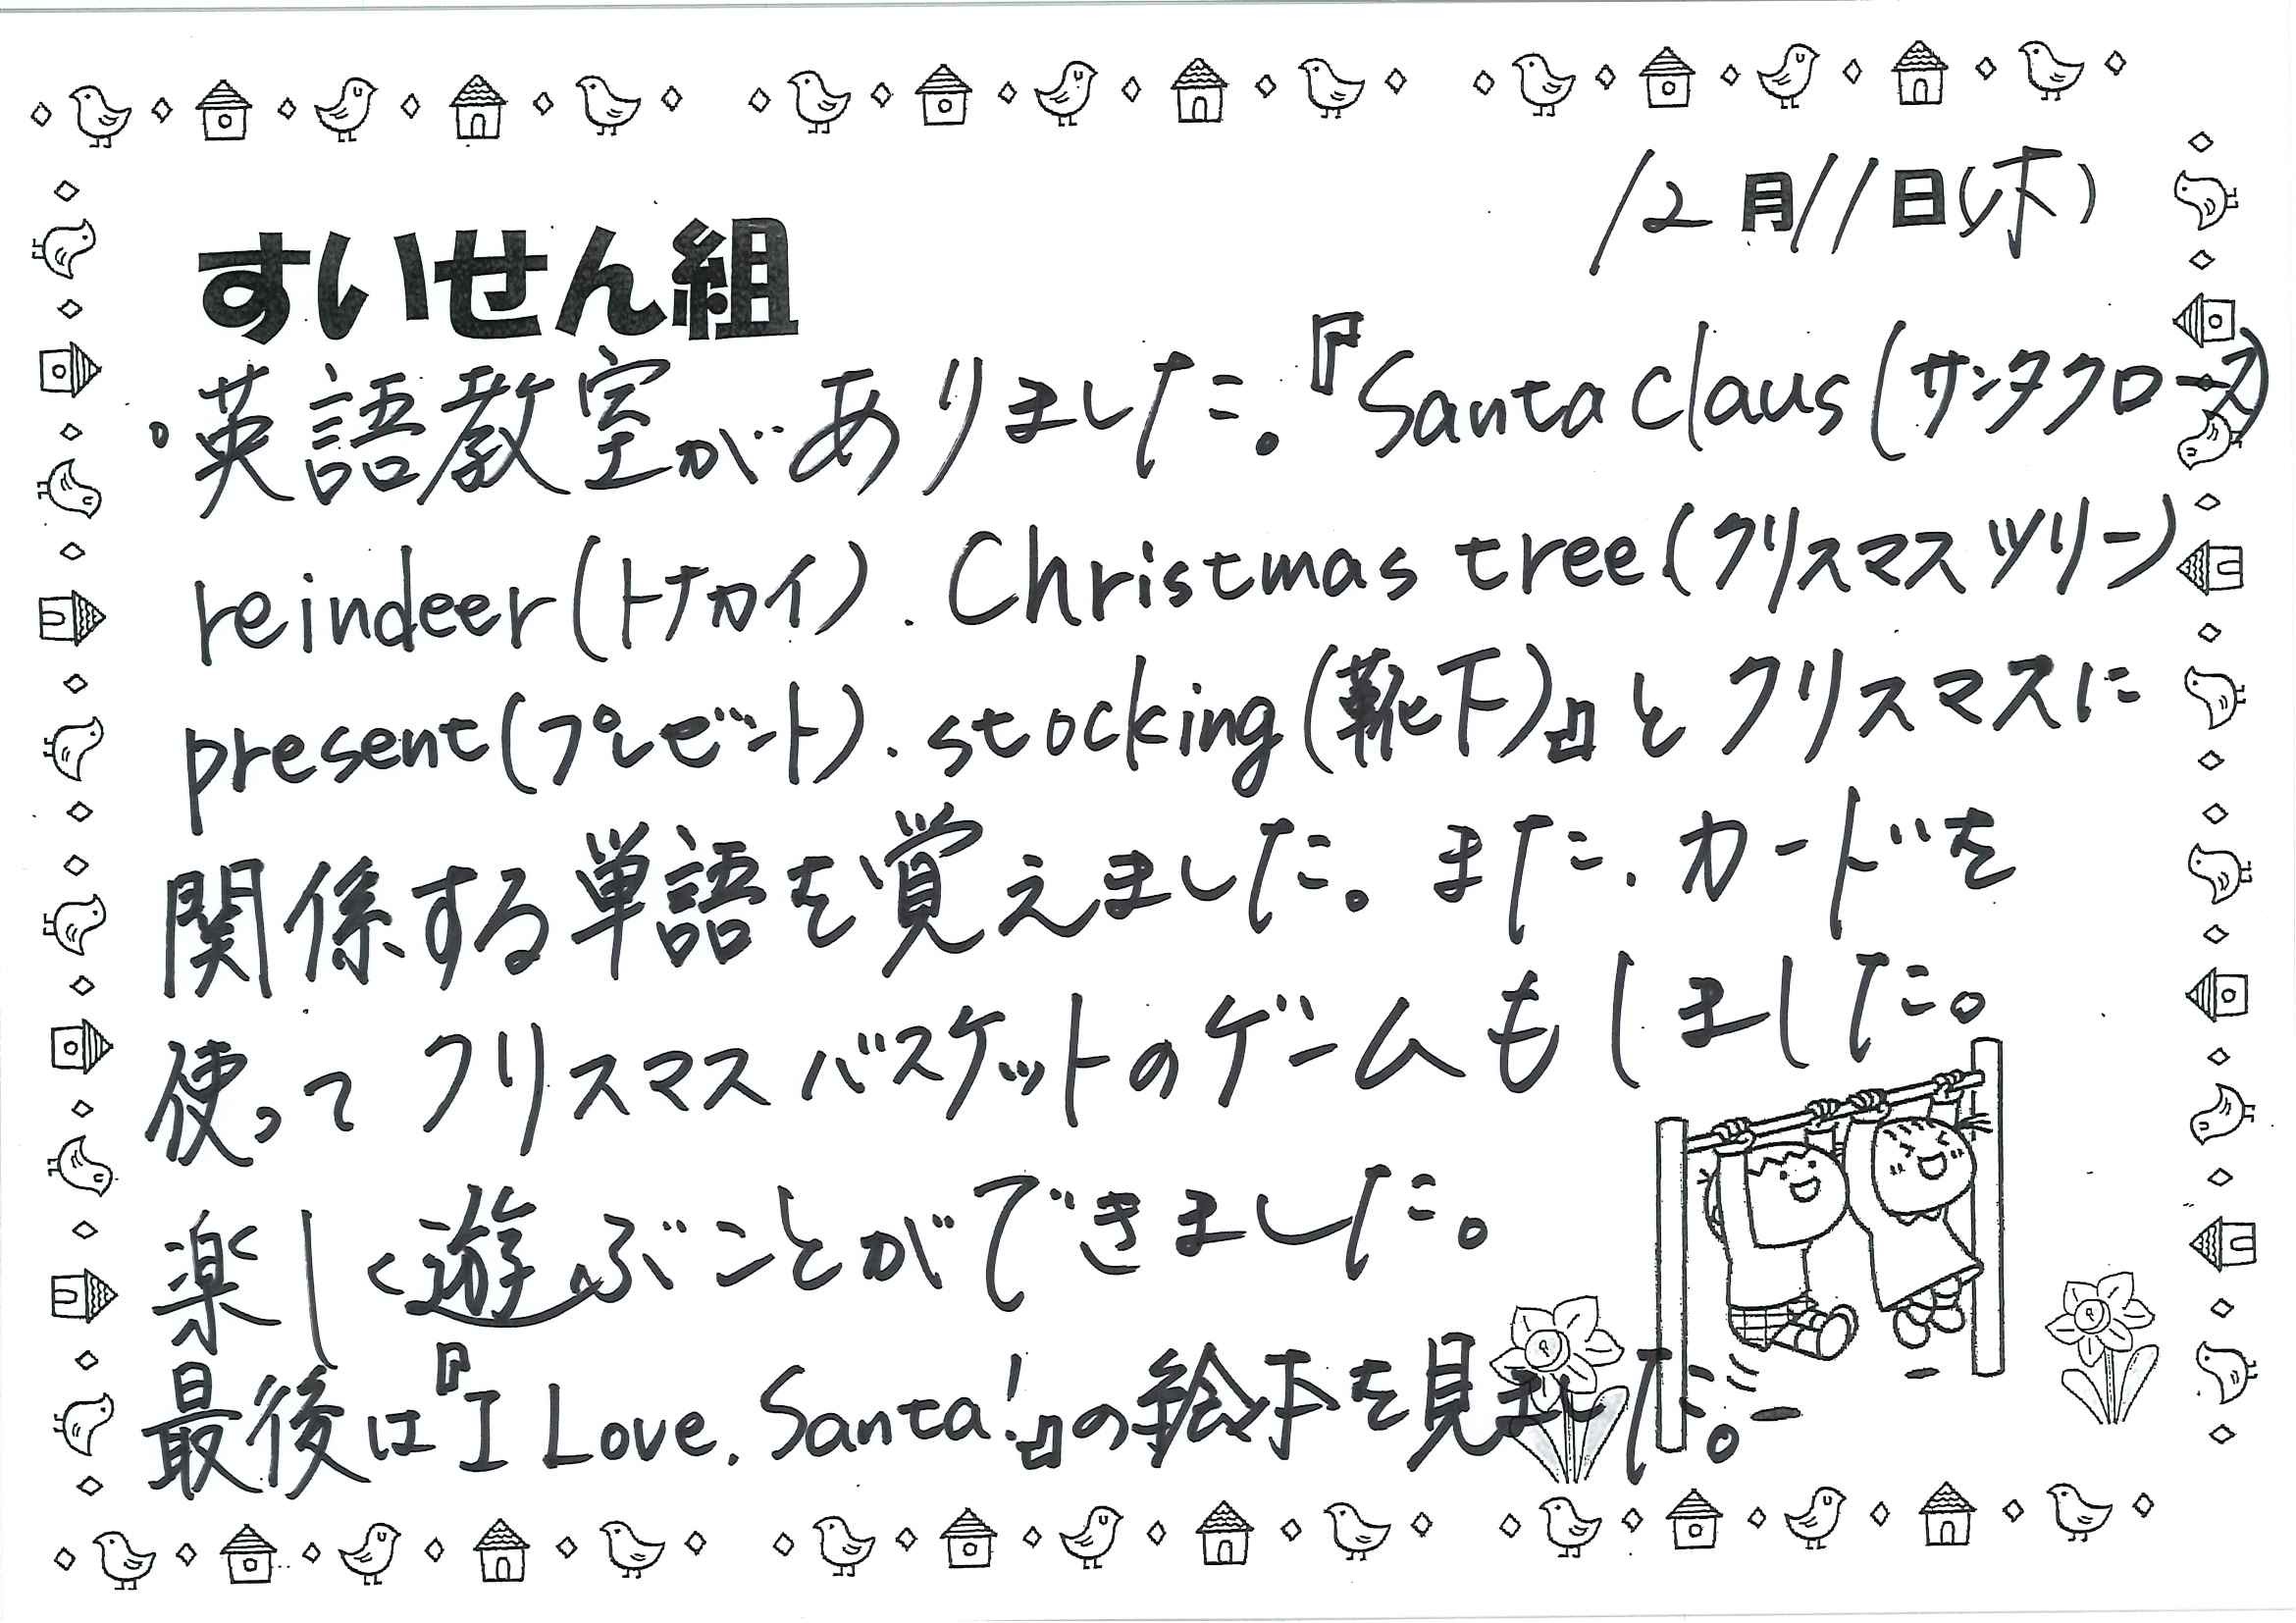 12月11日(木)
すいせん組
。英語教室がありました。『Santa claus(サンタクロース)
reindeer(トナカイ)、Christmas tree(クリスマスツリー)
present(プレゼント)、stocking(靴下)』とクリスマスに
関係する単語を覚えました。また、カードを
使ってクリスマスバスケットのゲームもしました。
楽しく遊ぶことができました。
最後は『I Love, Santa!』の絵本を見ました。